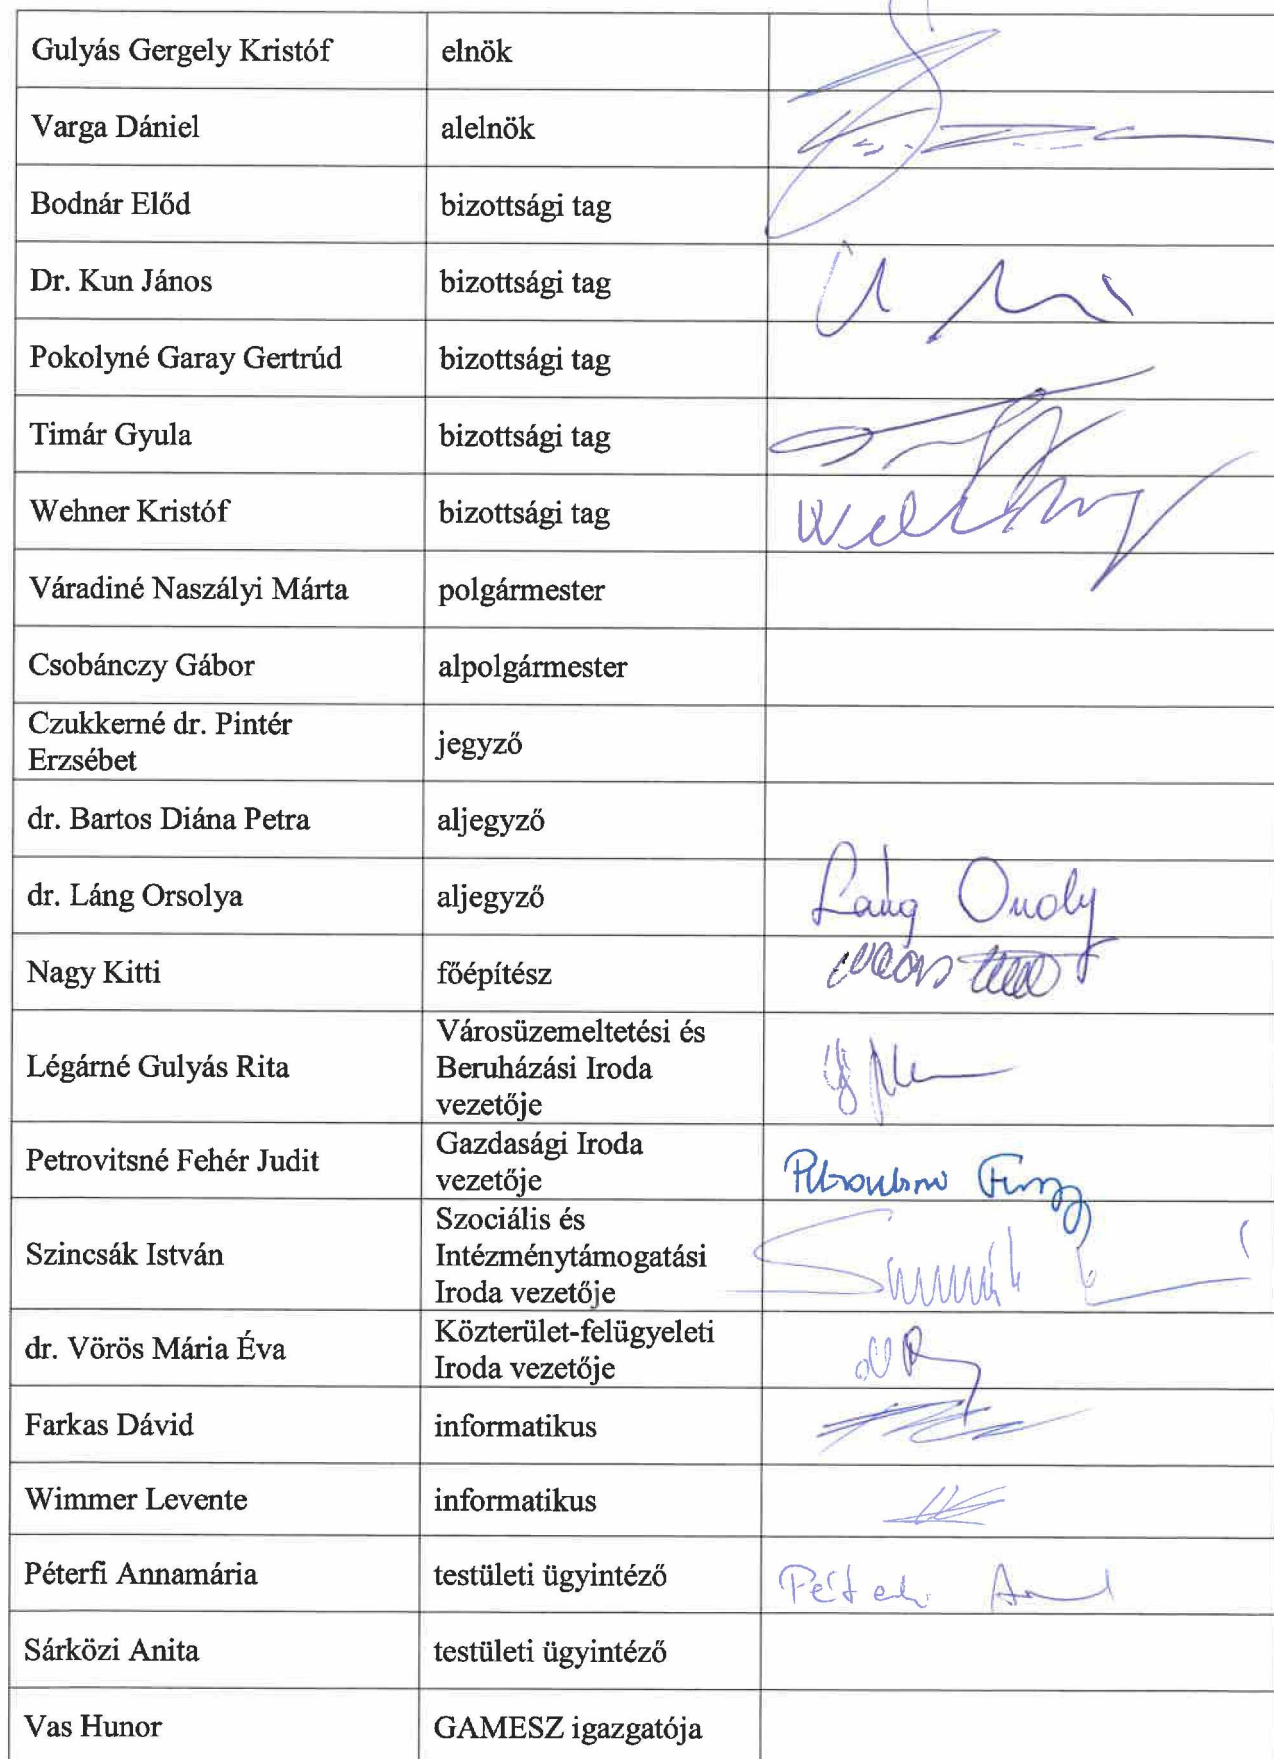 Gulyás Gergely Kristóf
elnök
Varga Dániel
alelnök
Bodnár Előd
bizottsági tag
Dr. Kun János
bizottsági tag
Pokolyné Garay Gertrúd
bizottsági tag
Timár Gyula
bizottsági tag
Wehner Kristóf
bizottsági tag
Váradiné Naszályi Márta
polgármester
Csobánczy Gábor
alpolgármester
Czukkerné dr. Pintér
Erzsébet
jegyző
dr. Bartos Diána Petra
aljegyző
dr. Láng Orsolya
aljegyző
Láng
Nagy Kitti
főépítész
Légárné Gulyás Rita
Városüzemeltetési és
Beruházási Iroda
vezetője
Petrovitsné Fehér Judit
Gazdasági Iroda
vezetője
Szincsák István
Szociális és
Intézménytámogatási
Iroda vezetője
dr. Vörös Mária Éva
Közterület-felügyeleti
Iroda vezetője
Farkas Dávid
informatikus
Wimmer Levente
informatikus
Péterfi Annamária
testületi ügyintéző
Sárközi Anita
testületi ügyintéző
Vas Hunor
GAMESZ igazgatója